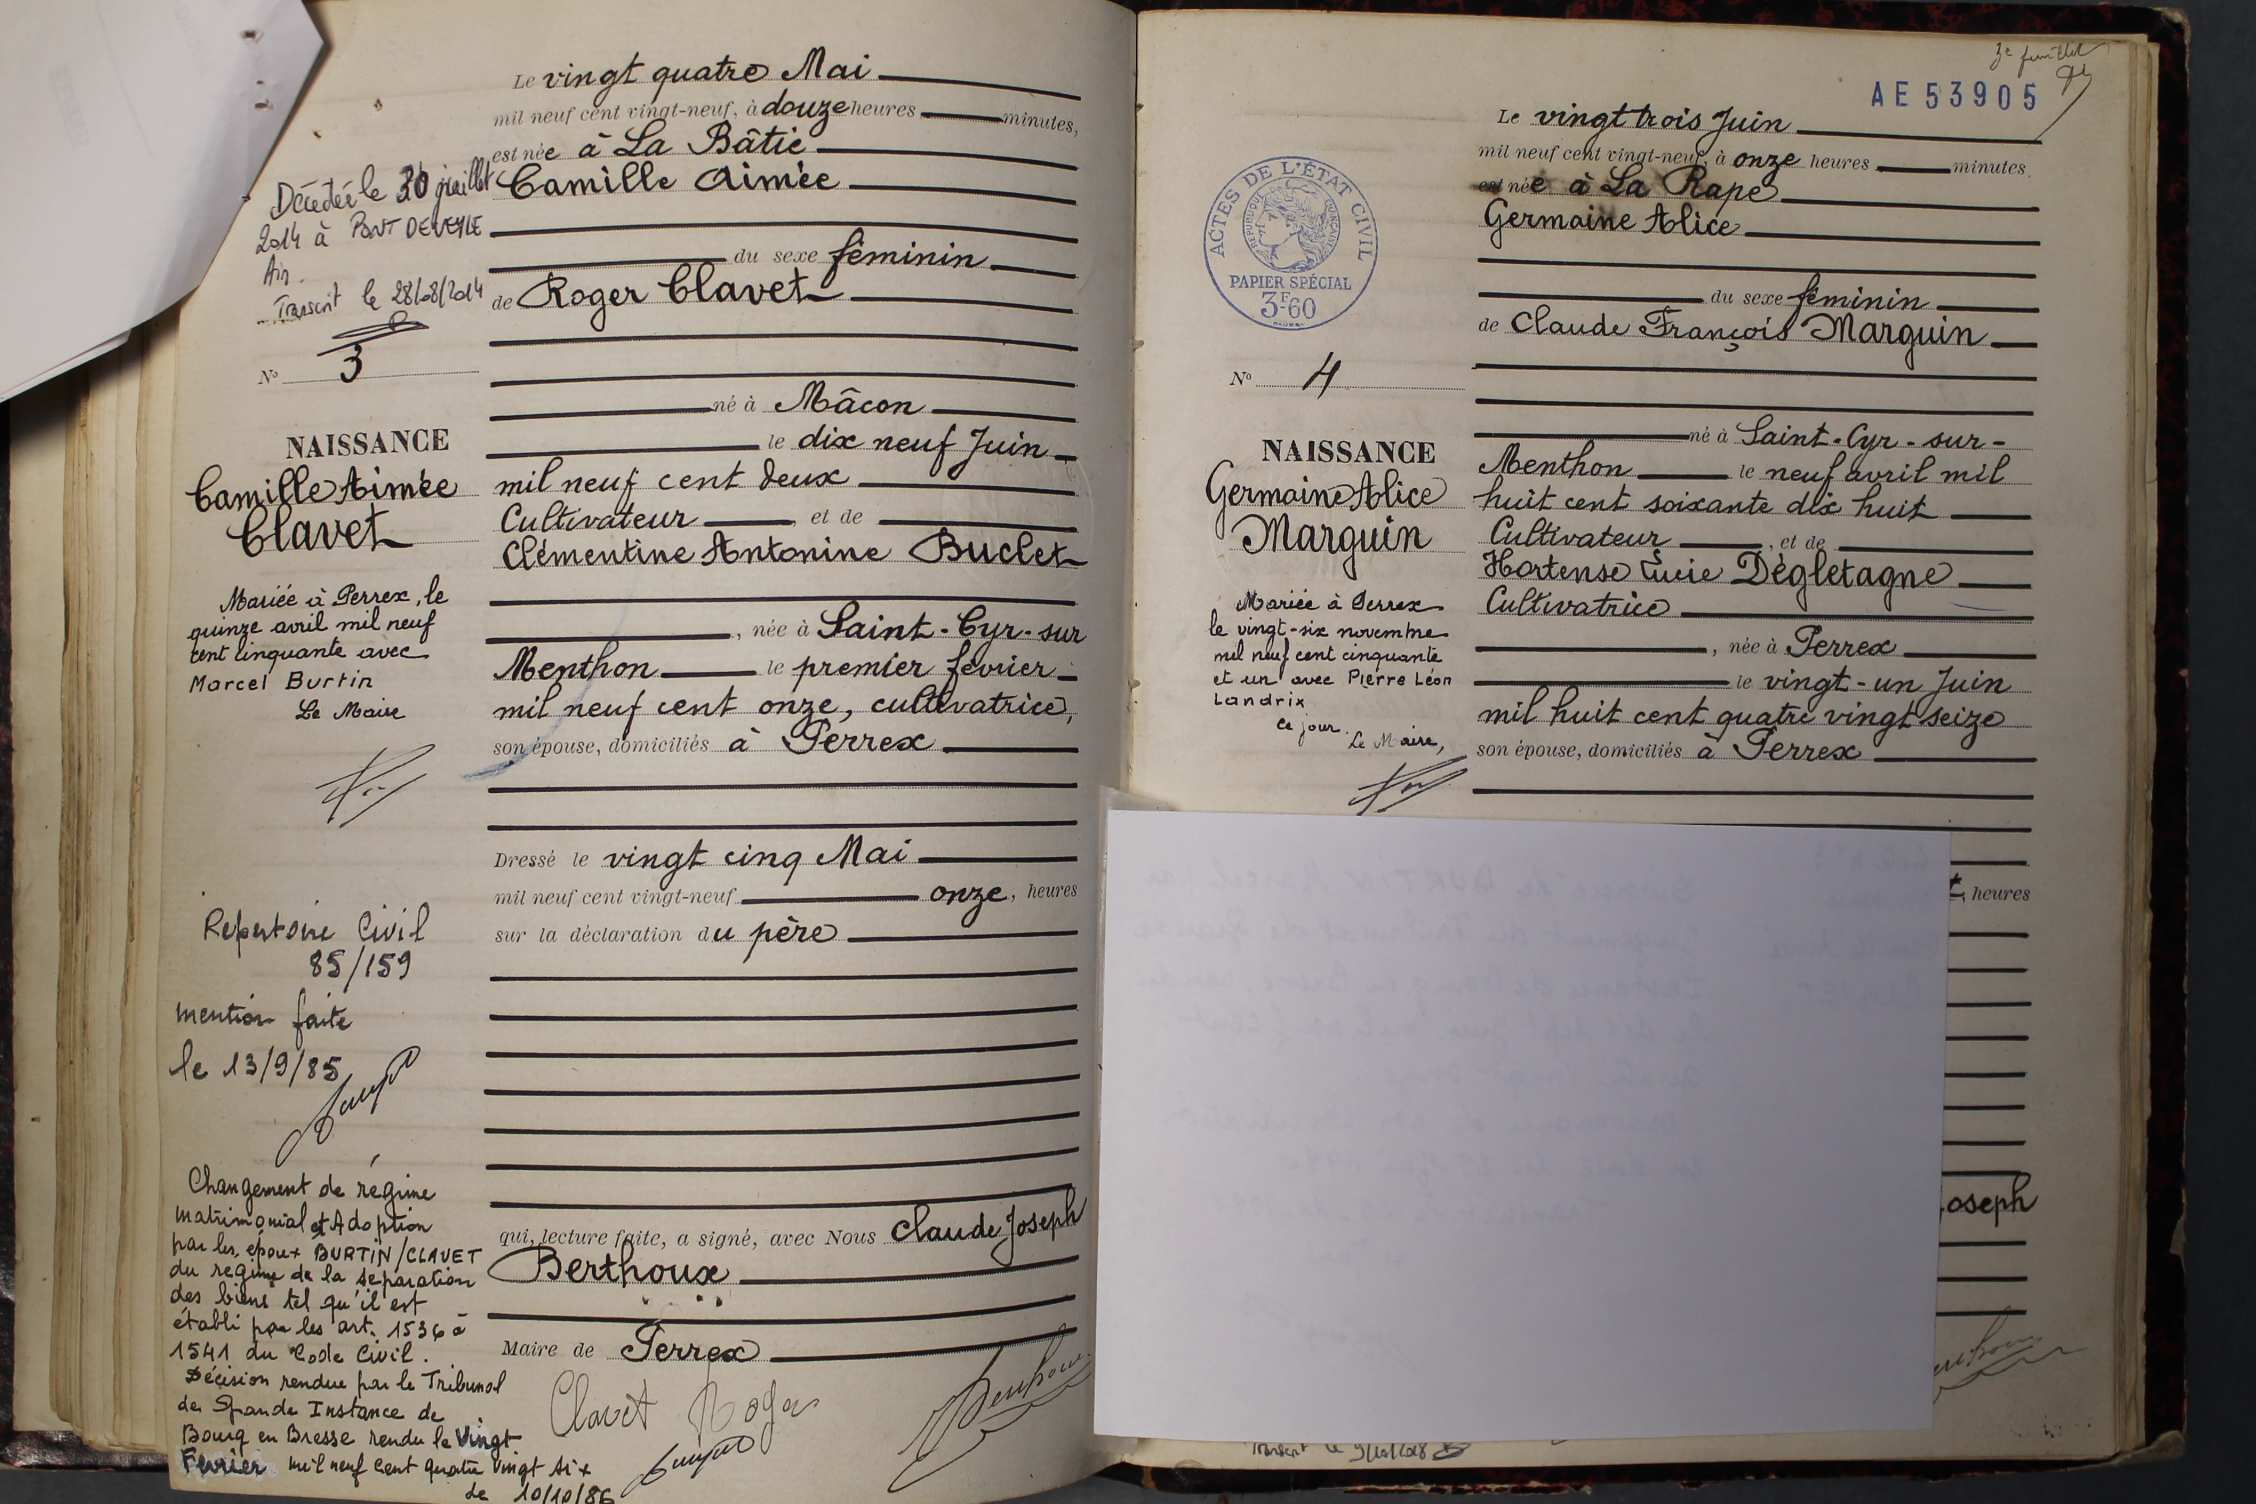 Le vingt quatre Mai
mil neuf cent vingt-neuf, à douze heures minutes,
est née à La Bâtie
Camille Aimée
du sexe féminin
de Roger Clavet
né à Mâcon
le dix neuf Juin
mil neuf cent deux
Cultivateur, et de
Clémentine Antonine Buclet
, née à Saint-Cyr-sur
Menthon le premier février
mil neuf cent onze, cultivatrice,
son épouse, domiciliés à Perrex
Dressé le vingt cinq Mai
mil neuf cent vingt-neuf onze, heures
sur la déclaration du père
qui, lecture faite, a signé, avec Nous Claude Joseph
Berthoux
Maire de Perrex
Clavet Roger
Décédée le 30 juillet
2014 à PONT DE VEYLE
Ain.
Transcrit le 28/08/2014
No 3
NAISSANCE
Camille Aimée
Clavet
Mariée à Perrex, le
quinze avril mil neuf
cent cinquante avec
Marcel Burtin
Le Maire
Repertoire Civil
85/159
mention faite
le 13/9/85
Changement de régime
matrimonial et Adoption
par les époux BURTIN/CLAVET
du regime de la séparation
des biens tel qu'il est
établi par les art. 1536 à
1541 du Code Civil.
Décision rendue par le Tribunal
de Grande Instance de
Bourg en Bresse rendu le Vingt
Fevrier mil neuf cent quatre vingt six
Le 10/10/86
3e feuillet
AE 53905
ACTES DE L'ÉTAT CIVIL
RÉPUBLIQUE FRANÇAISE
PAPIER SPÉCIAL
3F60
No 4
NAISSANCE
Germaine Alice
Marguin
Mariée à Perrex
le vingt-six novembre
mil neuf cent cinquante
et un avec Pierre Léon
Landrix
Ce jour.
Le Maire,
Le vingt trois Juin
mil neuf cent vingt-neuf, à onze heures minutes,
est née à La Rape
Germaine Alice
du sexe féminin
de Claude François Marguin
né à Saint-Cyr-sur-
Menthon le neuf avril mil
huit cent soixante dix huit
Cultivateur, et de
Hortense Lucie Dégletagne
Cultivatrice
, née à Perrex
le vingt-un Juin
mil huit cent quatre vingt seize
son épouse, domiciliés à Perrex
, heures
Joseph
Transcrit le